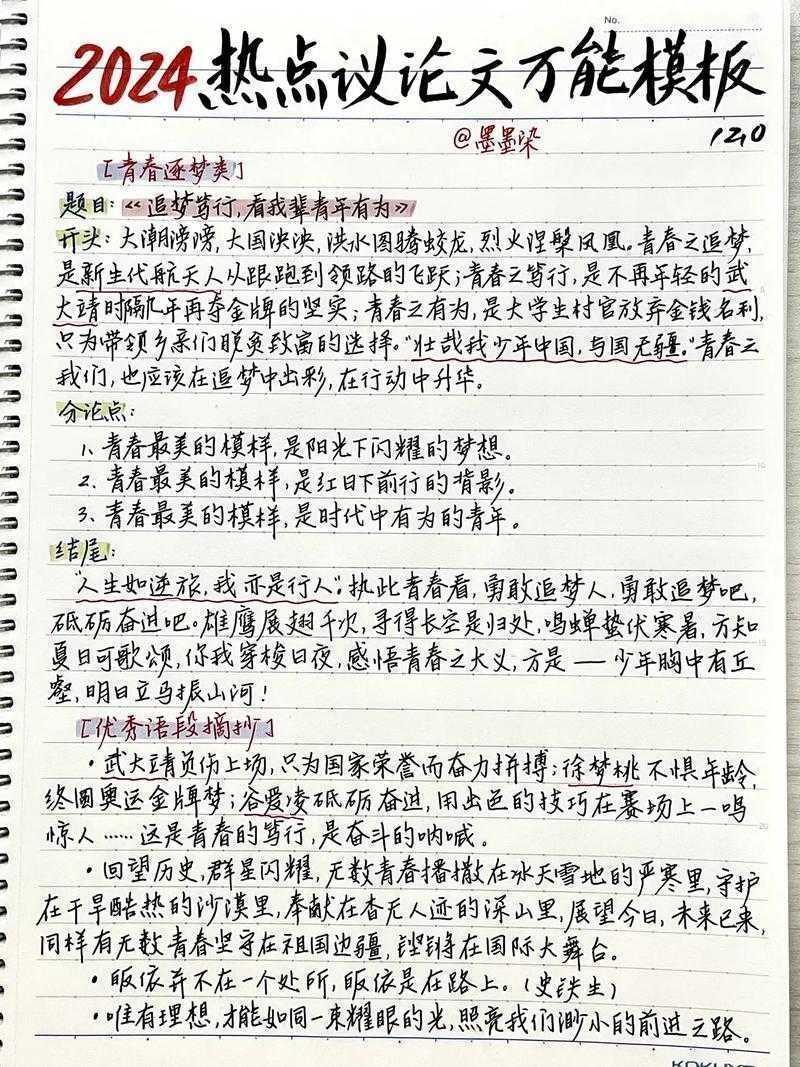 No.
2024热点议论文万能模板
@墨墨染
12,0
[青春逐梦类]
题目:《追梦笃行,看我辈青年有为》
开头:大潮滂滂,大国泱泱,洪水图腾蛟龙,烈火涅槃凤凰。青春之追梦,
是新生代航天人从跟跑到领路的飞跃;青春之笃行,是不再年轻的武
大靖时隔几年再夺金牌的坚实;青春之有为,是大学生村官放弃金钱名利,
只为带领乡亲们脱贫致富的选择。"壮哉我少年中国,与国无疆。"青春之
我们,也应该在追梦中出彩,在行动中升华。
分论点:
1、青春最美的模样,是阳光下闪耀的梦想。
2、青春最美的模样,是红日下前行的背影。
3、青春最美的模样,是时代中有为的青年。
结尾:
"人生如逆旅,我亦是行人"。执此青春看,勇敢追梦人,勇敢追梦吧,
砥砺奋进吧。雄鹰展翅千次,寻得长空是归处,鸣蝉蛰伏寒暑,方知
夏日可歌颂,你我穿梭日夜,感悟青春之大义,方是——少年胸中有丘
壑,明日立马振山河!
[优秀语段摘抄]
·武大靖负伤上场,只为国家荣誉而奋力拼搏;徐梦桃不惧年龄,
终圆奥运金牌梦;谷爱凌砥砺奋进,用出色的技巧在赛场上一鸣
惊人……这是青春的笃行,是奋斗的呐喊。
·回望历史,群星闪耀,无数青春播撒在冰天雪地的严寒里,守护
在干旱酷热的沙漠里,奉献在杳无人迹的深山里,展望今日,未来已来,
同样有无数青春坚守在祖国边疆,铿锵在国际大舞台。
·皈依并不在一个处所,皈依是在路上。(史铁生)
·唯有理想,才能如同一束耀眼的光,照亮我们渺小的前进之路。